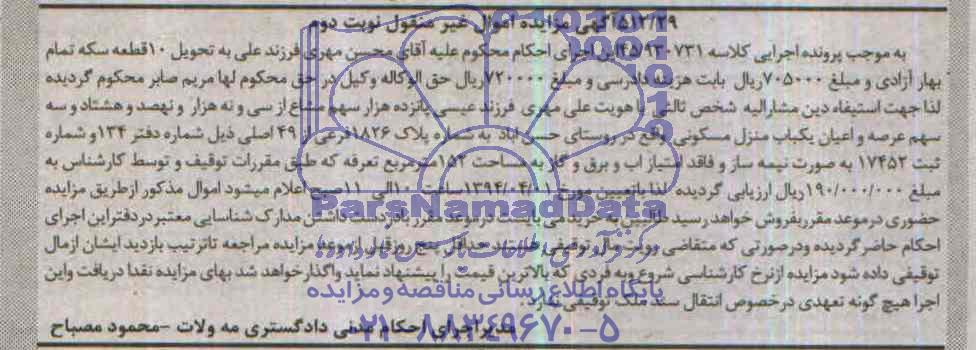 ۵۱۲/۲۹ آگهی مزایده اموال غیر منقول نوبت دوم
به موجب پرونده اجرایی کلاسه ۴۵/۹۳۰۷۳۱ این اجرای احکام محکوم علیه آقای محسن مهری فرزند علی به تحویل ۱۰قطعه سکه تمام
بهار آزادی و مبلغ ۷۰۵۰۰۰ریال بابت هزینه دادرسی و مبلغ ۷۲۰۰۰۰ریال حق الوکاله وکیل در حق محکوم لها مریم صابر محکوم گردیده
لذا جهت استیفاء دین مشارالیه شخص ثالثی با هویت علی مهری فرزند عیسی پانزده هزار سهم مشاع از سی و نه هزار و نهصد و هشتاد و سه
سهم عرصه و اعیان یکباب منزل مسکونی واقع در روستای حسن آباد به شماره پلاک ۱۸۲۶فرعی از ۴۹ اصلی ذیل شماره دفتر ۱۳۴و شماره
ثبت ۱۷۴۵۲ به صورت نیمه ساز و فاقد امتیاز اب و برق و گاز به مساحت ۱۵۲مترمربع تعرفه که طبق مقررات توقیف و توسط کارشناس به
مبلغ ۱۹۰/۰۰۰/۰۰۰ریال ارزیابی گردیده لذا باتعیین مورخ ۱۳۹۴/۰۴/۰۱ساعت ۱۰الی ۱۱صبح اعلام میشود اموال مذکور ازطریق مزایده
حضوری درموعد مقرربفروش خواهد رسید طالبین به خرید می بایست درموعد مقرر بادردست داشتن مدارک شناسایی معتبردردفتراین اجرای
احکام حاضرگردیده ودرصورتی که متقاضی رویت مال توقیفی هستند حداقل پنج روزقبل ازموعد مزایده مراجعه تاترتیب بازدید ایشان ازمال
توقیفی داده شود مزایده ازنرخ کارشناسی شروع وبه فردی که بالاترین قیمت را پیشنهاد نماید واگذارخواهد شد بهای مزایده نقدا دریافت واین
اجرا هیچ گونه تعهدی درخصوص انتقال سند ملک توقیفی ندارد.
مدیر اجرای احکام مدنی دادگستری مه ولات -محمود مصباح
ParsNamadData
پایگاه اطلاع رسانی مناقصه و مزایده
۰۲۱-۸۸۳۴۹۶۷۰-۵